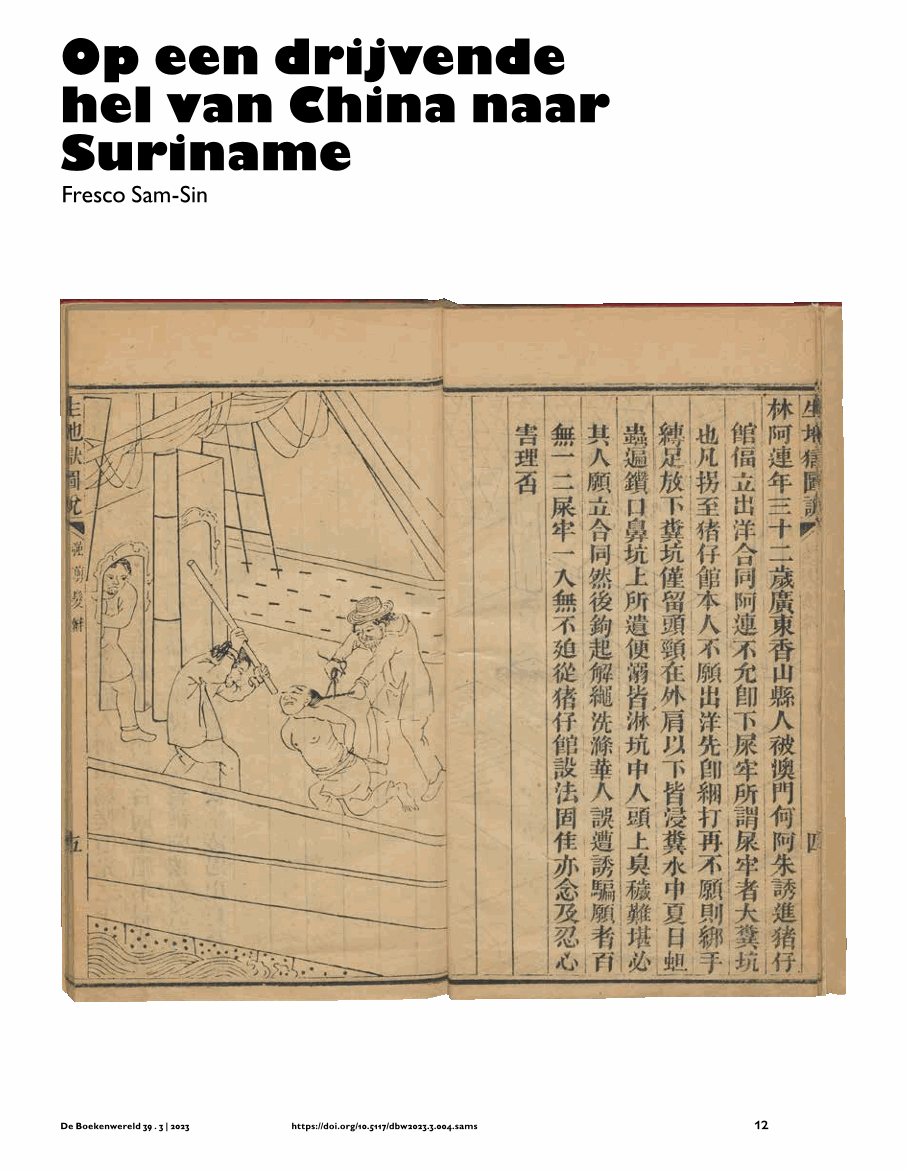 Op een drijvende
hel van China naar
Suriname
Fresco Sam-Sin
生地獄圖說
四
林阿連年三十二歲廣東香山縣人被澳門何阿朱誘進猪仔
館偪立出洋合同阿連不允卽下屎牢所謂屎牢者大糞坑
也凡拐至猪仔館本人不願出洋先卽綑打再不願則綁手
縛足放下糞坑僅留頭頸在外肩以下皆浸糞水中夏日蛆
蟲遍鑽口鼻坑上所遺便溺皆淋坑中人頭上臭穢難堪必
其人願立合同然後鉤起解繩洗滌華人誤遭誘騙願者百
無一二屎牢一入無不廹從猪仔館設法固佳亦念及忍心
害理否
生地獄圖說
强剪髮辮
五
De Boekenwereld 39 . 3 | 2023
https://doi.org/10.5117/dbw2023.3.004.sams
12